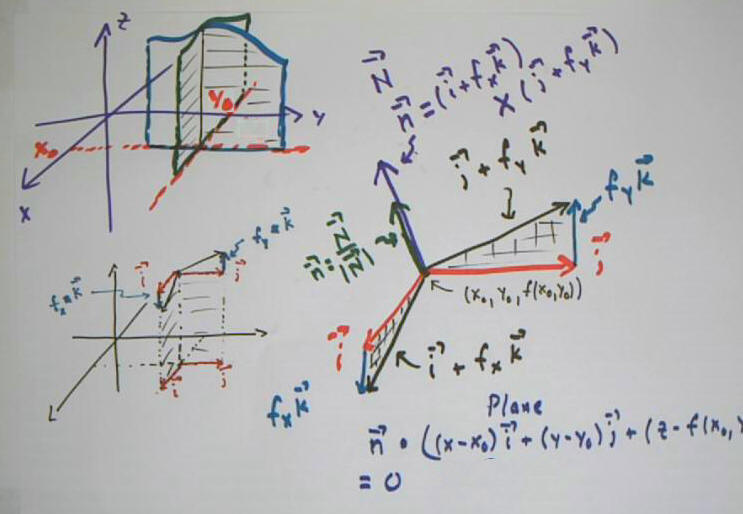 z
y
x
x₀
y₀
N⃗
n⃗ = (i⃗ + fₓk⃗)
× (j⃗ + fᵧk⃗)
j⃗ + fᵧk⃗
fᵧk⃗
j⃗
n⃗ = N⃗/|N⃗|
(x₀, y₀, f(x₀, y₀))
i⃗
i⃗ + fₓk⃗
fₓk⃗
fᵧ = k⃗
fₓ = k⃗
i⃗
j⃗
i⃗
j⃗
Plane
n⃗ • ((x-x₀)i⃗ + (y-y₀)j⃗ + (z - f(x₀, y
= 0